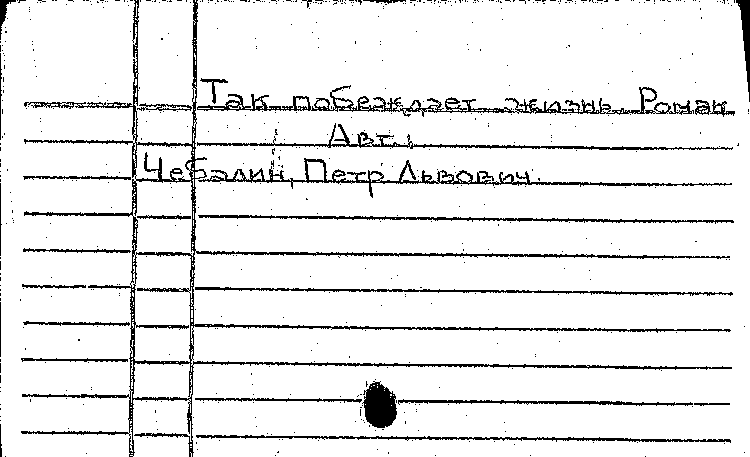 Так побеждает жизнь. Роман
Авт.:
Чебалин, Петр Львович.